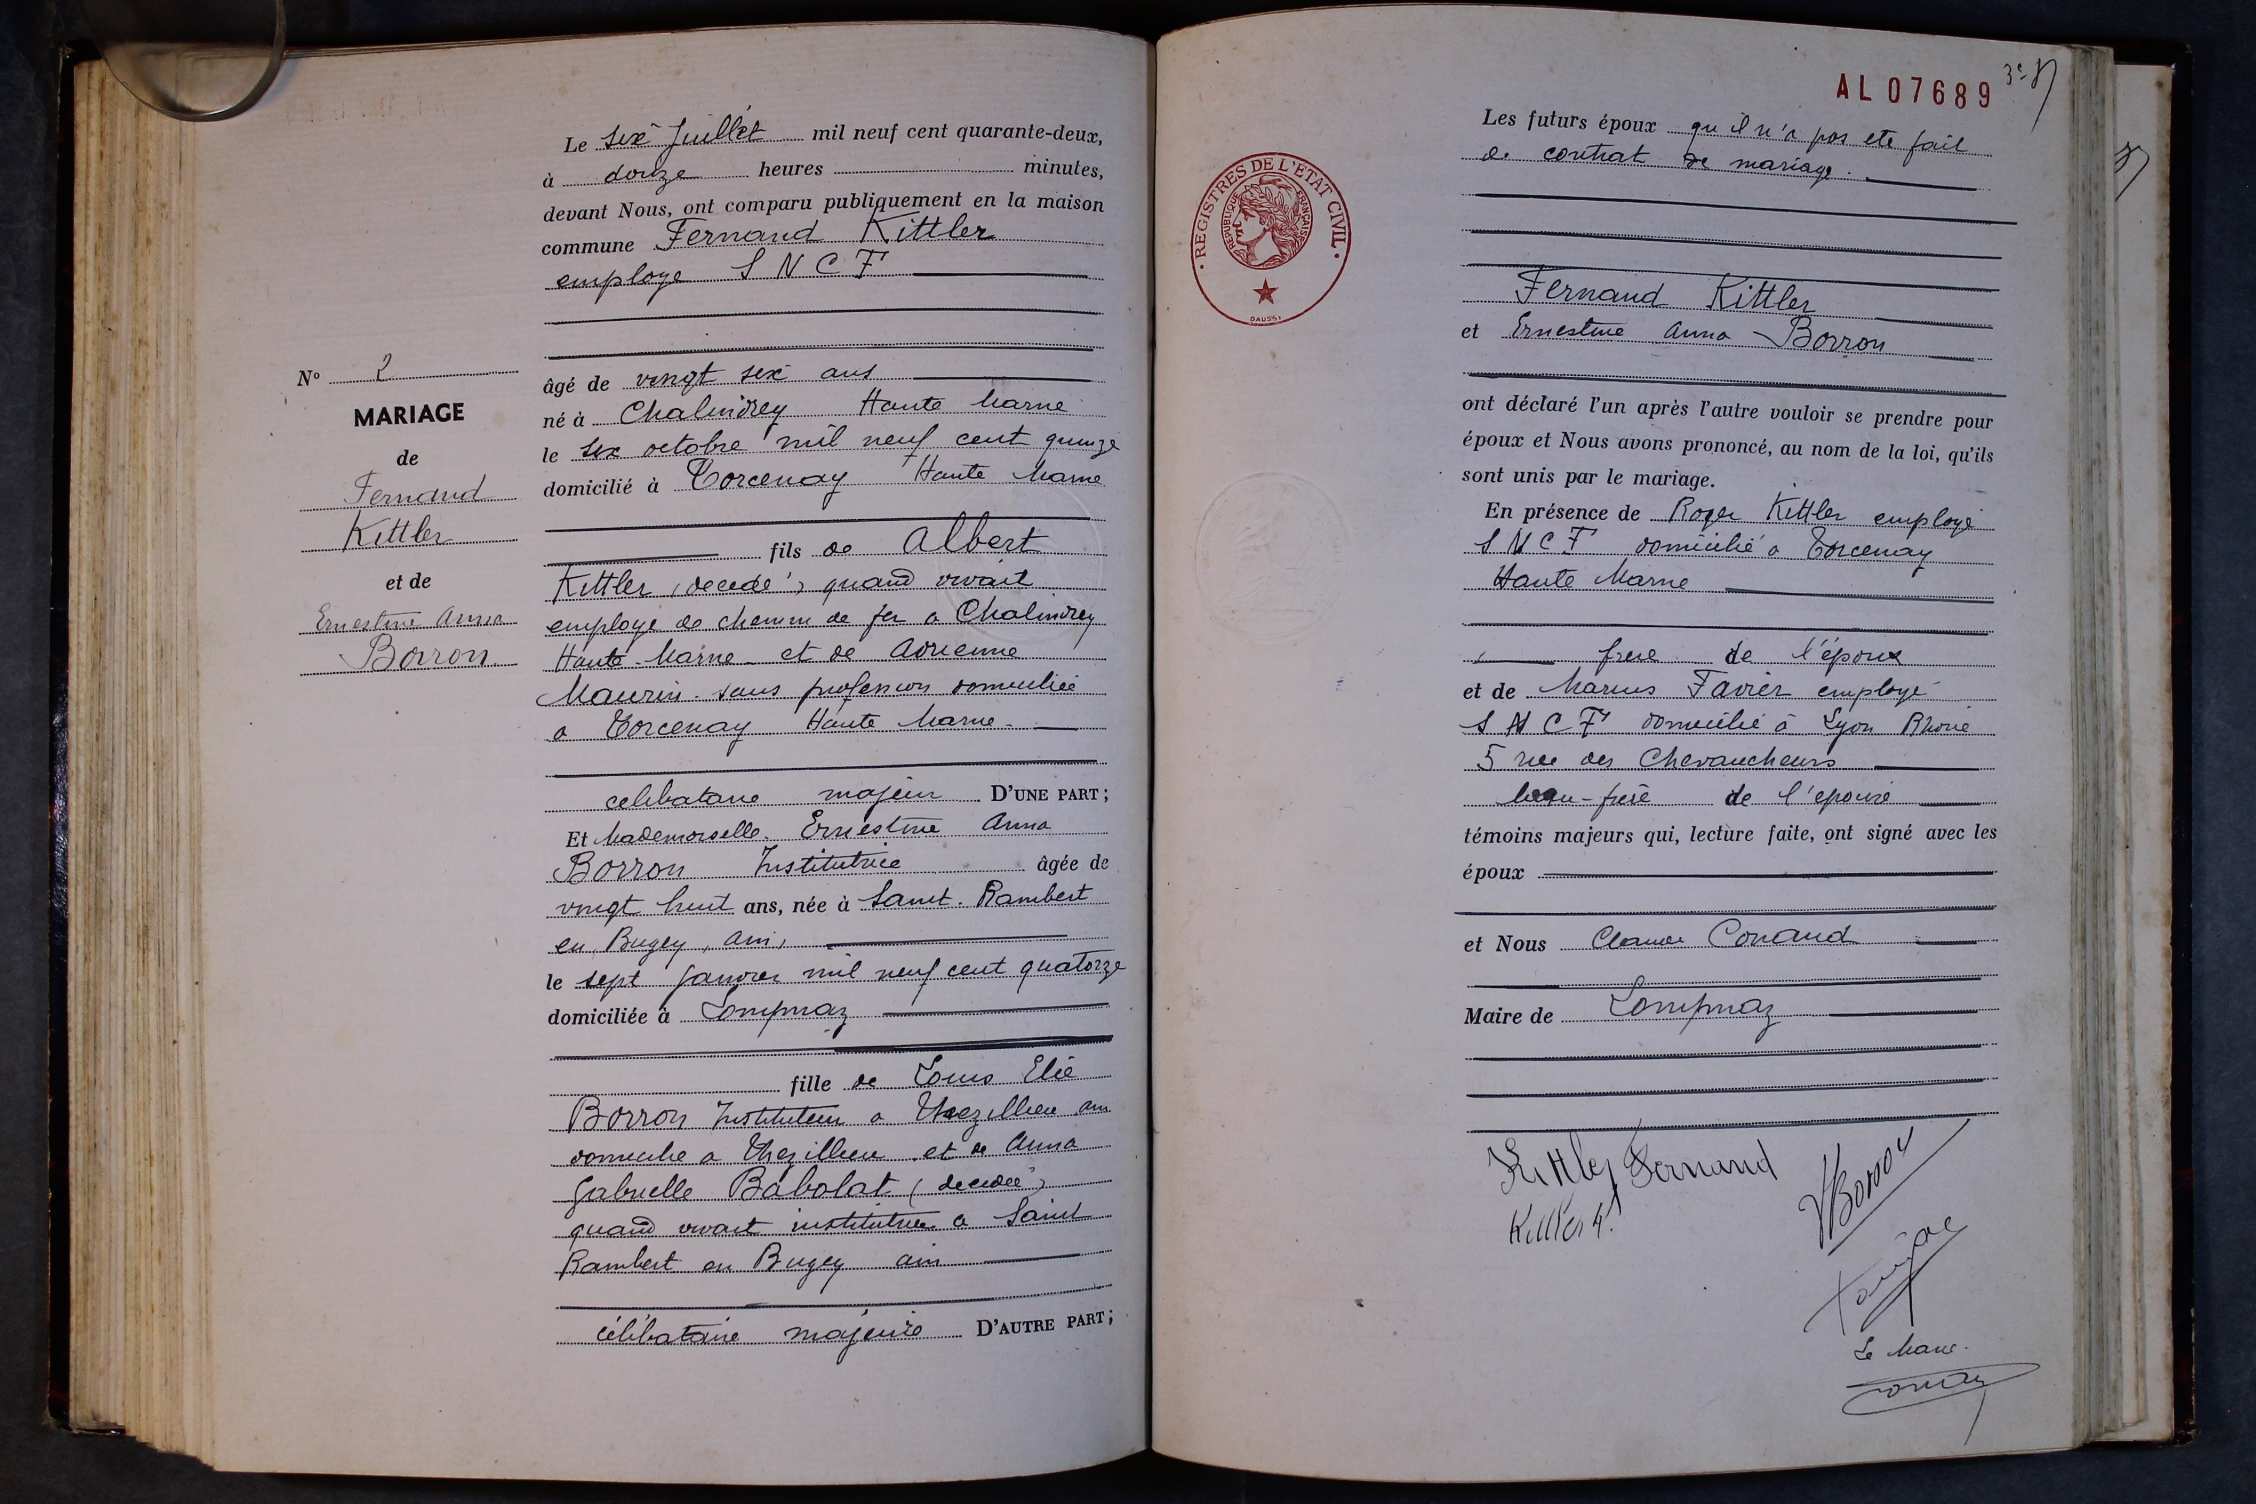 Le six Juillet mil neuf cent quarante-deux,
à douze heures minutes,
devant Nous, ont comparu publiquement en la maison
commune Fernand Kittler
employe S N C F
N° 2
MARIAGE
de
Fernand
Kittler
et de
Ernestine Anna
Borron
âgé de vingt six ans
né à Chalindrey Haute Marne
le six octobre mil neuf cent quinze
domicilié à Torcenay Haute Marne
fils de Albert
Kittler (decedé) quand vivait
employe de chemin de fer a Chalindrey
Haute-Marne et de Adrienne
Maurin sans profession domiciliée
a Torcenay Haute Marne
celibataire majeur D'UNE PART;
Et Mademoiselle Ernestine Anna
Borron Institutrice âgée de
vingt huit ans, née à Saint-Rambert
en Bugey, Ain,
le sept Janvier mil neuf cent quatorze
domiciliée à Lompnaz
fille de Louis Elie
Borron Instituteur a Thezillieu Ain
domicilie a Thezillieu et de Anna
Gabrielle Babolat (decedée)
quand vivait institutrice a Saint
Rambert en Bugey Ain
célibataire majeure D'AUTRE PART;
AL 07689
REGISTRES DE L'ÉTAT CIVIL
RÉPUBLIQUE FRANÇAISE
Les futurs époux qu'il n'a pas ete fait
de contrat de mariage.
Fernand Kittler
et Ernestine Anna Borron
ont déclaré l'un après l'autre vouloir se prendre pour
époux et Nous avons prononcé, au nom de la loi, qu'ils
sont unis par le mariage.
En présence de Roger Kittler employé
S N C F domicilié a Torcenay
Haute Marne
frere de l'époux
et de Marius Favier employé
S N C F domicilié à Lyon Rhone
5 rue des Chevaucheurs
beau-frere de l'epouse
témoins majeurs qui, lecture faite, ont signé avec les
époux
et Nous Claude Conand
Maire de Lompnaz
Kittler Fernand
Borron
Kittler
Le Maire
Conand